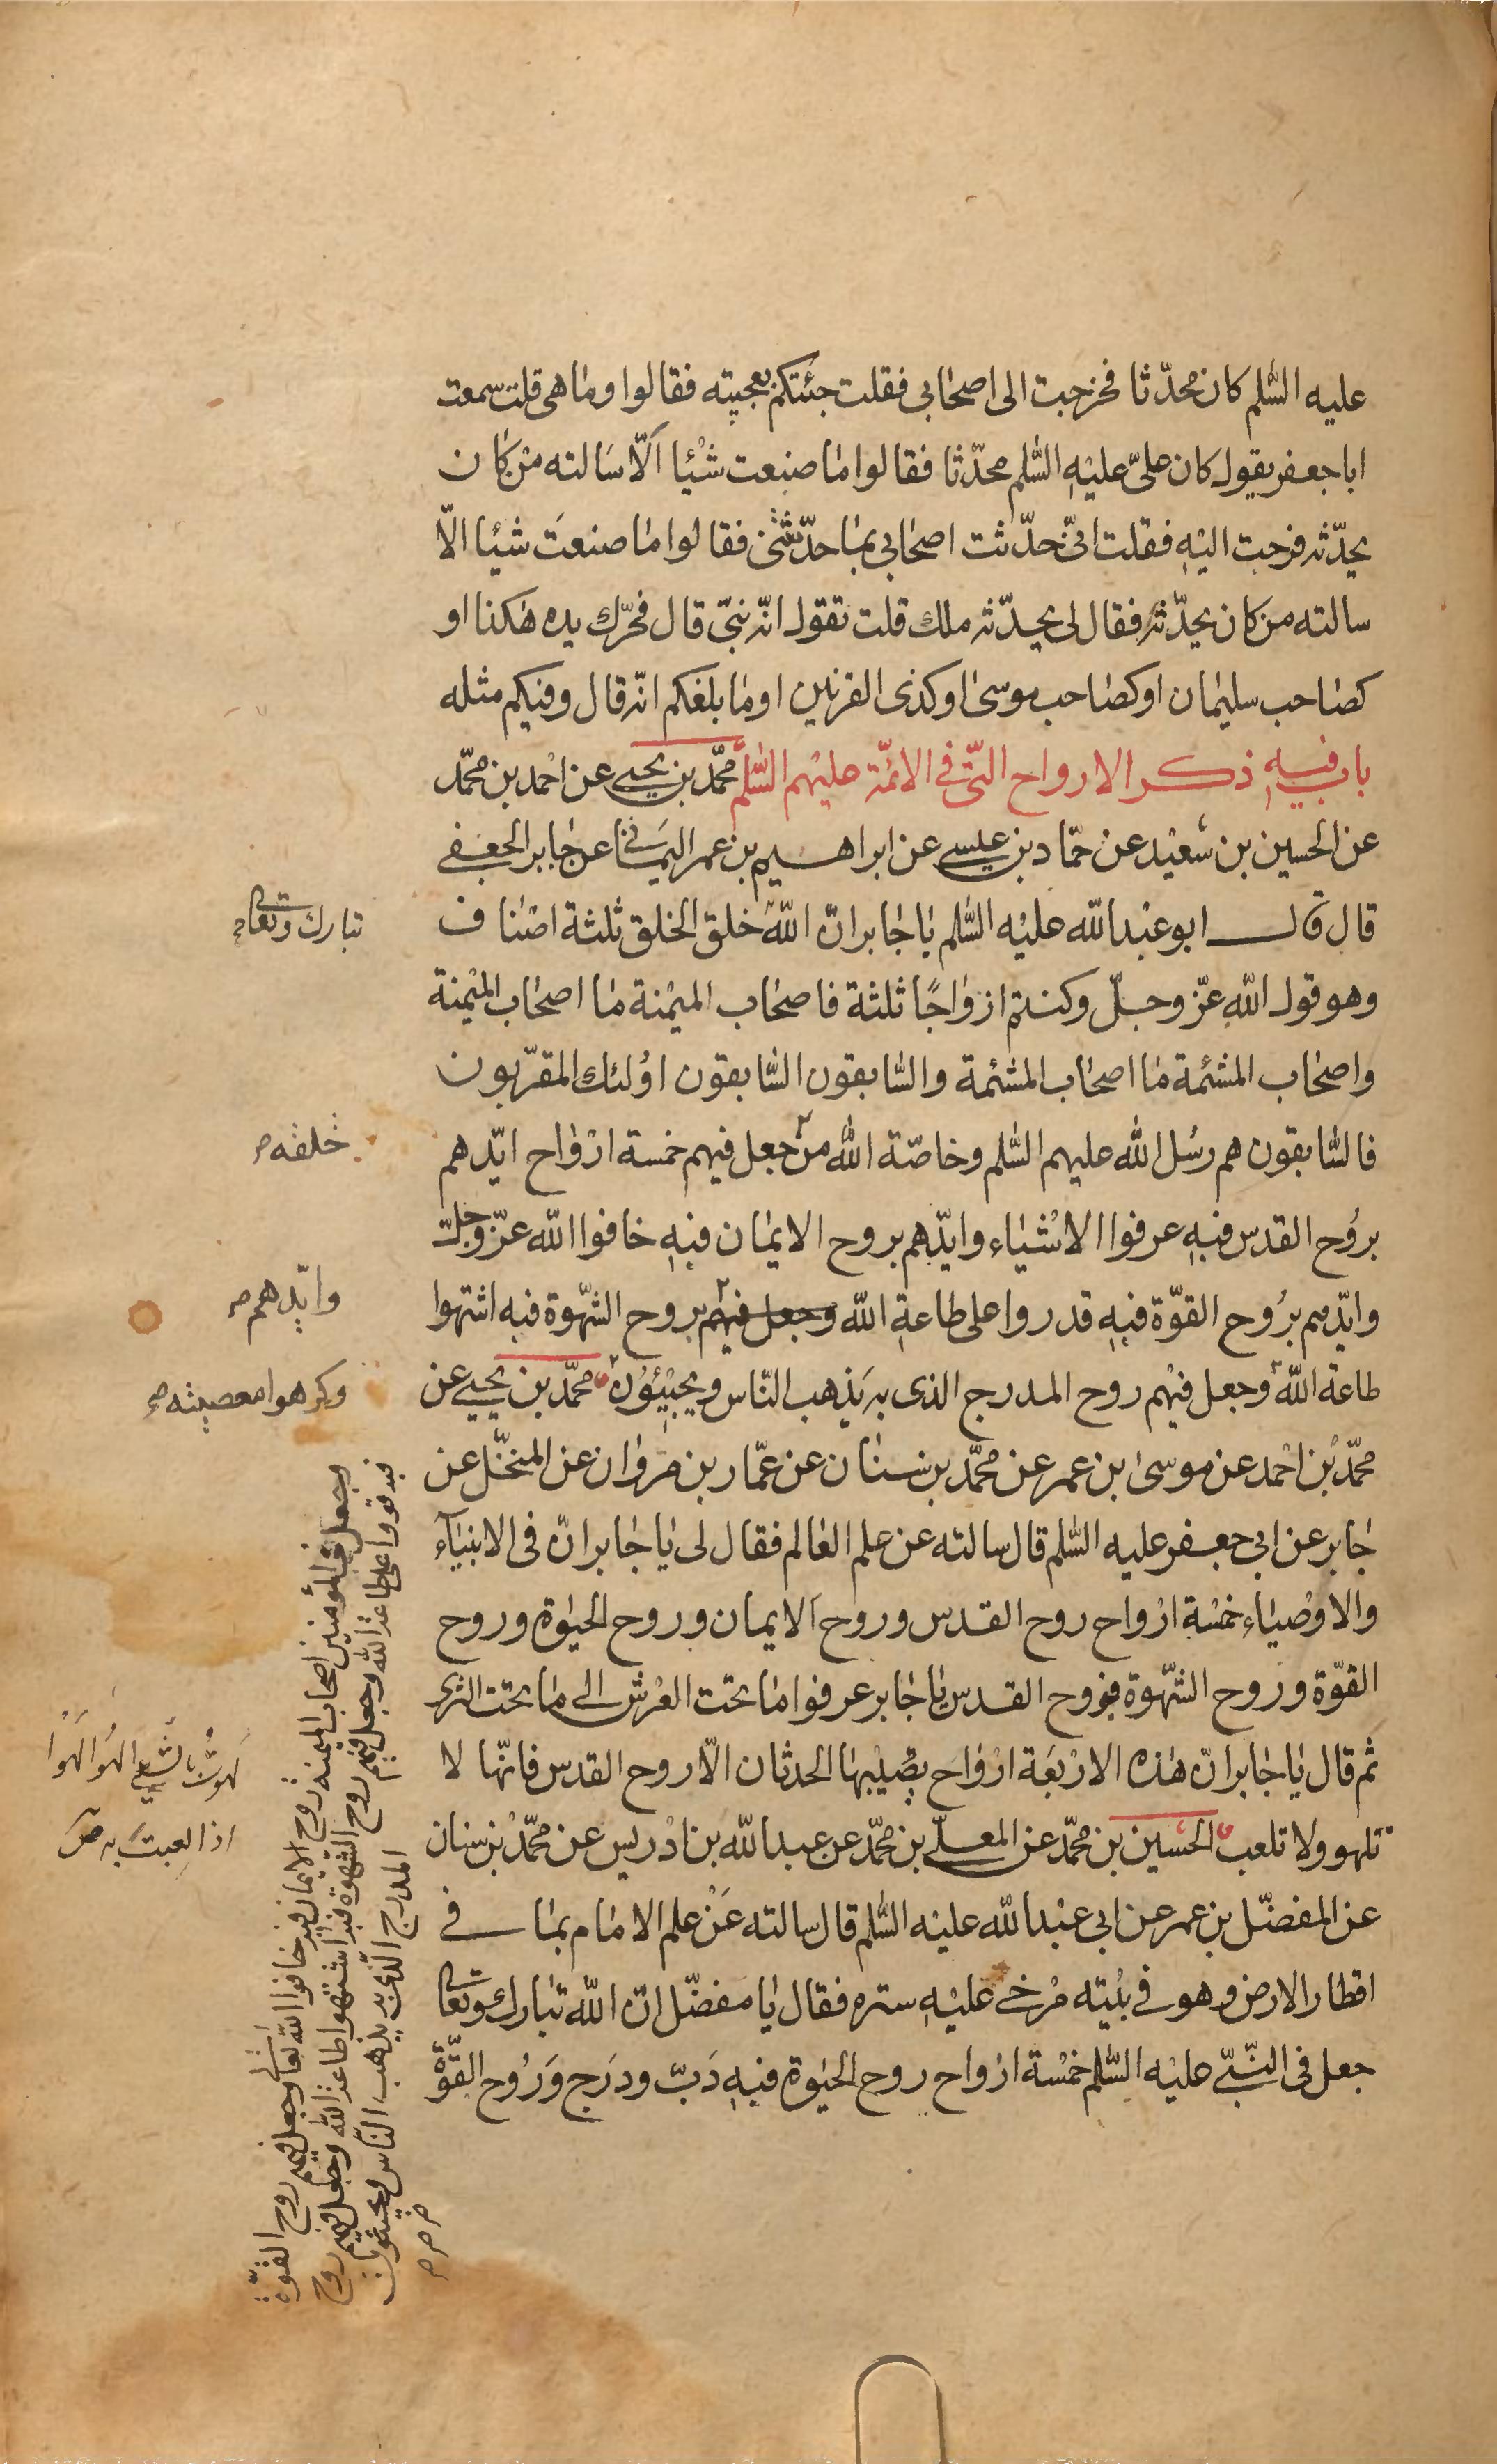 عليه السّلم كان محدّثا فخرجت الى اصحابى فقلت جئتكم بعجيبة فقالوا وما هى قلت سمعت
ابا جعفر يقول كان علىّ عليه السّلم محدّثا فقالوا ما صنعت شيئا الّا سالته من كان
يحدّثه فرجعت اليه فقلت انّى حدّثت اصحابى بما حدّثتنى فقالوا ما صنعت شيئا الّا
سالته من كان يحدّثه فقال لى يحدّثه ملك قلت تقول انّه نبىّ قال فحرّك يده هكذا او
كصاحب سليمان او كصاحب موسى او كذى القرنين او ما بلغكم انّه قال وفيكم مثله
باب فيه ذكر الارواح الّتى فى الائمّة عليهم السّلم محمّد بن يحيى عن احمد بن محمّد
عن الحسين بن سعيد عن حمّاد بن عيسى عن ابراهيم بن عمر اليمانى عن جابر الجعفى
قال قال ابو عبدالله عليه السّلم يا جابر انّ الله خلق الخلق ثلثة اصناف
وهو قول الله عزّ وجلّ وكنتم ازواجًا ثلثة فاصحاب الميمنة ما اصحاب الميمنة
واصحاب المشئمة ما اصحاب المشئمة والسّابقون السّابقون اولئك المقرّبون
فالسّابقون هم رسل الله عليهم السّلم وخاصّة الله من جعل فيهم خمسة ارواح ايّدهم
بروح القدس فبه عرفوا الاشياء وايّدهم بروح الايمان فبه خافوا الله عزّ وجلّ
وايّدهم بروح القوّة فبه قدروا على طاعة الله وجعل فيهم بروح الشهّوة فبه اشتهوا
طاعة الله وجعل فيهم روح المدرج الذى به يذهب النّاس ويجيئون محمّد بن يحيى عن
محمّد بن احمد عن موسى بن عمر عن محمّد بن سنان عن عمّار بن مروان عن المنخّل عن
جابر عن ابى جعفر عليه السّلم قال سالته عن علم العالم فقال لى يا جابر انّ فى الانبيآء
والاوصياء خمسة ارواح روح القدس وروح الايمان وروح الحيوة وروح
القوّة وروح الشهّوة فبروح القدس يا جابر عرفوا ما تحت العرش الى ما تحت الثرى
ثم قال يا جابر انّ هذه الاربعة ارواح يصيبها الحدثان الّا روح القدس فانّها لا
تلهو ولا تلعب الحسين بن محمّد عن المعلّى بن محمّد عن عبدالله بن ادريس عن محمّد بن سنان
عن المفضّل بن عمر عن ابى عبدالله عليه السّلم قال سالته عن علم الامام بما فى
اقطار الارض وهو فى بيته مرخى عليه ستره فقال يا مفضّل انّ الله تبارك وتعالى
جعل فى النّبىّ عليه السّلم خمسة ارواح روح الحيوة فبه دبّ ودرج وروح القوّة
تبارك وتعالى
خلقه
وايّدهم
وكرهوا معصيته
وجعل فى المؤمنين اصحاب الميمنة روح الايمان فبه خافوا الله تعالى وجعل فيهم روح القوّة
فبه قووا على طاعة الله وجعل فيهم روح الشهوة فبه اشتهوا طاعة الله وجعل فيهم روح
المدرج الّذى به يذهب النّاس ويجيئون
لهوت بالشىء الهو لهوا
اذا لعبت به